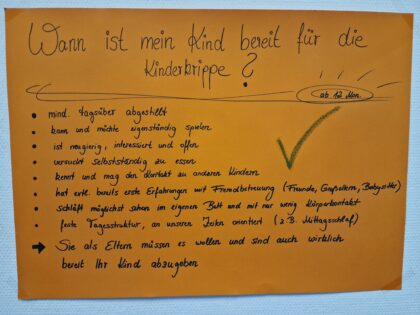 Wann ist mein Kind bereit für die
Kinderkrippe?
ab 12 Mon.
• mind. tagsüber abgestillt
• kann und möchte eigenständig spielen
• ist neugierig, interessiert und offen
• versucht selbstständig zu essen
• kennt und mag den Kontakt zu anderen Kindern
• hat evtl. bereits erste Erfahrungen mit Fremdbetreuung (Freunde, Großeltern, Babysitter)
• schläft möglichst schon im eigenen Bett und mit nur wenig Körperkontakt
• feste Tagesstruktur, an unseren Zeiten orientiert (z.B. Mittagsschlaf)
→ Sie als Eltern müssen es wollen und sind auch wirklich
bereit Ihr Kind abzugeben